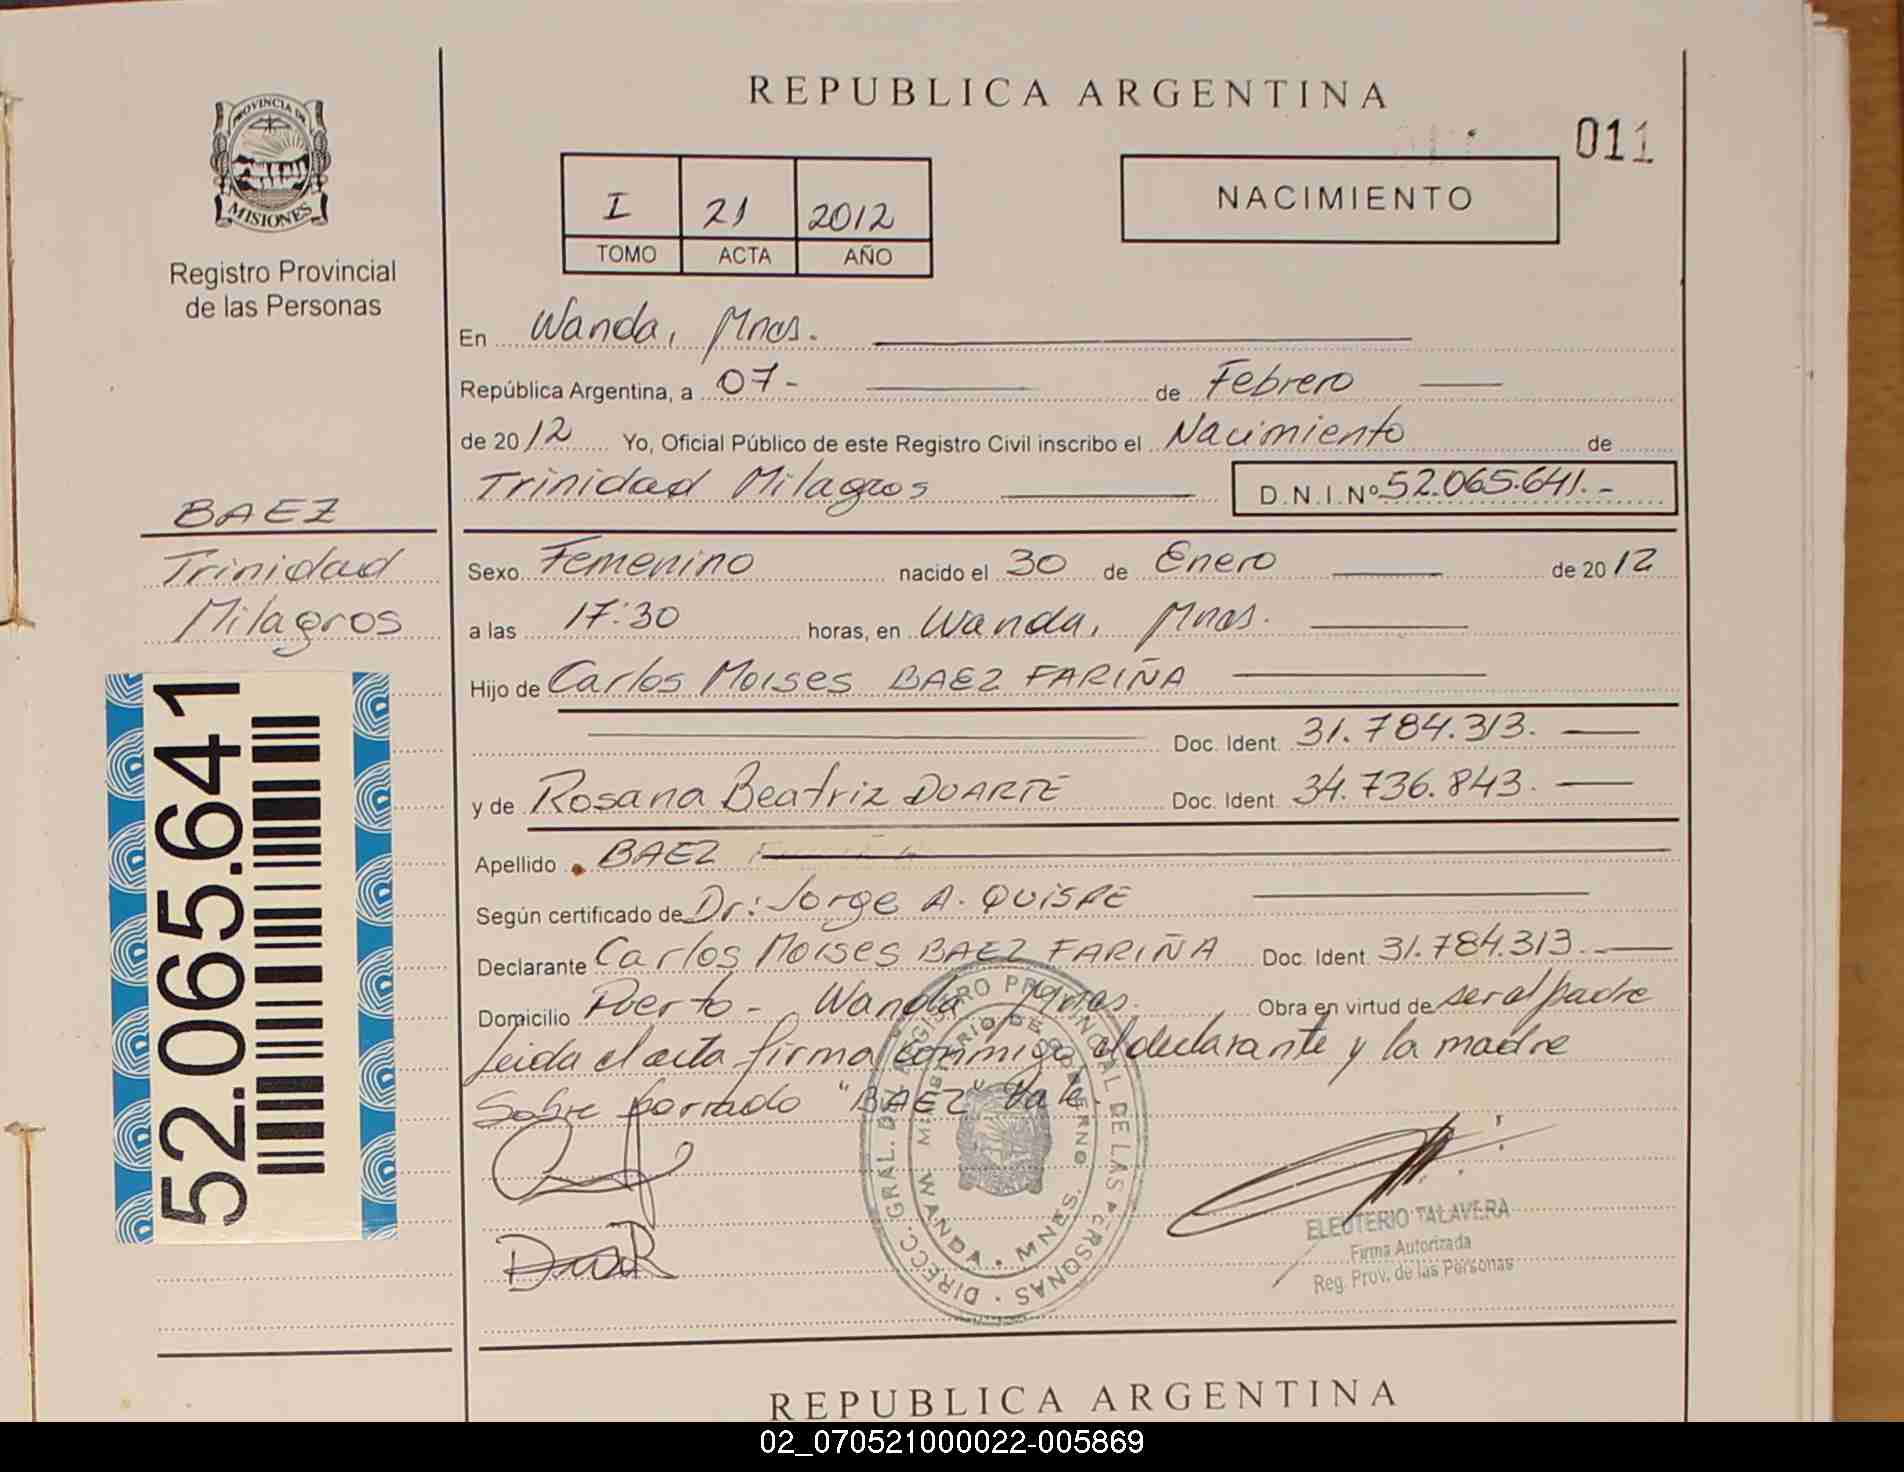 REPUBLICA ARGENTINA
011
PROVINCIA DE
MISIONES
Registro Provincial
de las Personas
I 21 2012
TOMO ACTA AÑO
NACIMIENTO
En Wanda, Mnes.
República Argentina, a 07- de Febrero
de 2012 Yo, Oficial Público de este Registro Civil inscribo el Nacimiento de
Trinidad Milagros D.N.I.Nº 52.065.641.-
BAEZ
Trinidad
Milagros
52.065.641
Sexo Femenino nacido el 30 de Enero de 2012
a las 17:30 horas, en Wanda, Mnes.
Hijo de Carlos Moises BAEZ FARIÑA
Doc. Ident. 31.784.313.
y de Rosana Beatriz DUARTE Doc. Ident. 34.736.843.
Apellido BAEZ
Según certificado de Dr: Jorge A. QUISPE
Declarante Carlos Moises BAEZ FARIÑA Doc. Ident. 31.784.313.
Domicilio Puerto - Wanda Mnes. Obra en virtud de ser el padre
Leida el acta firma conmigo el declarante y la madre
Sobre borrado "BAEZ" Vale.
DIRECC. GRAL. DEL REGISTRO PROVINCIAL DE LAS PERSONAS
MINISTERIO DE GOBIERNO
WANDA · MNES.
ELEUTERIO TALAVERA
Firma Autorizada
Reg. Prov. de las Personas
REPUBLICA ARGENTINA
02_070521000022-005869